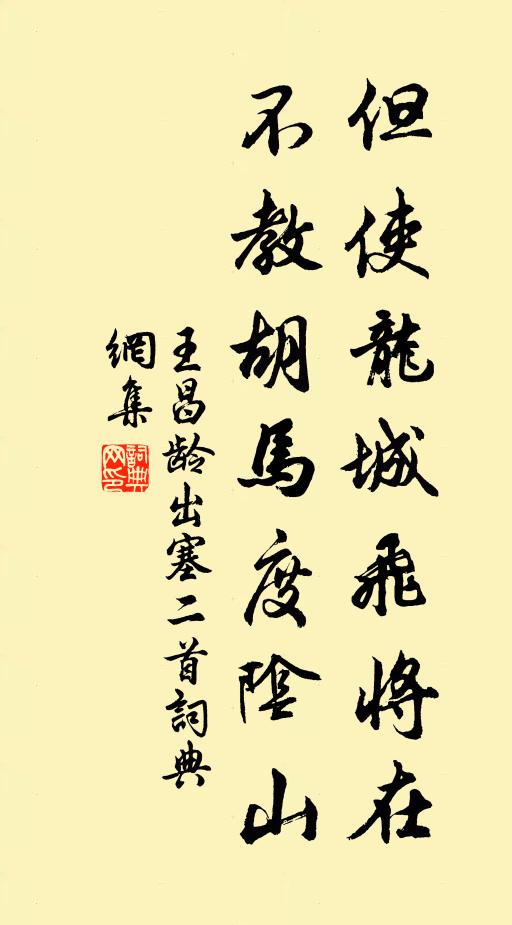 但使龍城飛將在
不教胡馬度陰山
王昌龄出塞二首詞典
網集
詞典
网印